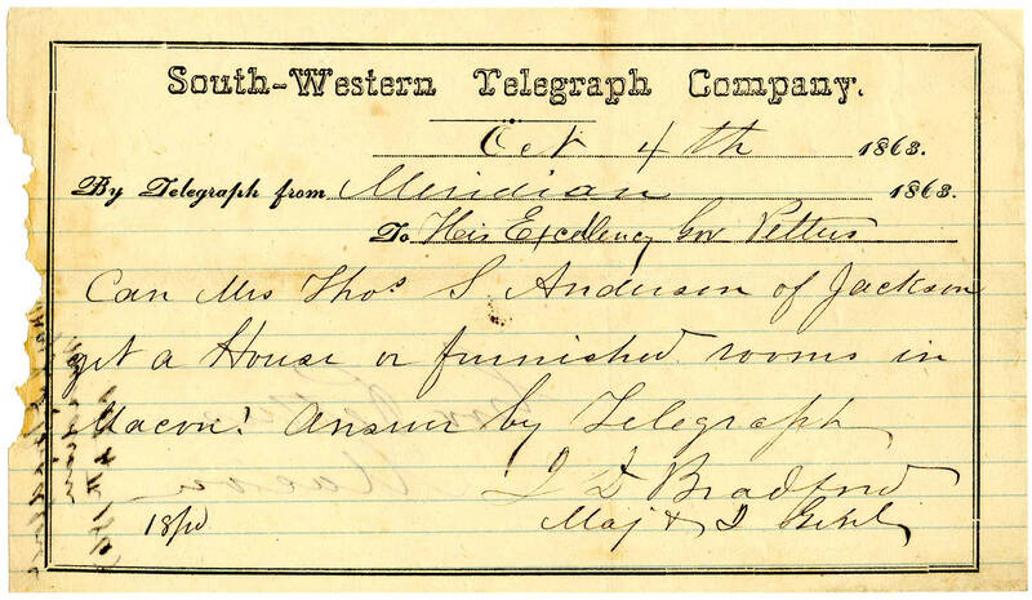 South-Western Telegraph Company.
Oct 4th 1863.
By Telegraph from Meridian 1863.
To His Excellency Gov Pettus
Can Mrs Thos S Anderson of Jackson
get a House or furnished rooms in
Macon? Answer by Telegraph
J D Bradford
18/pd Maj &